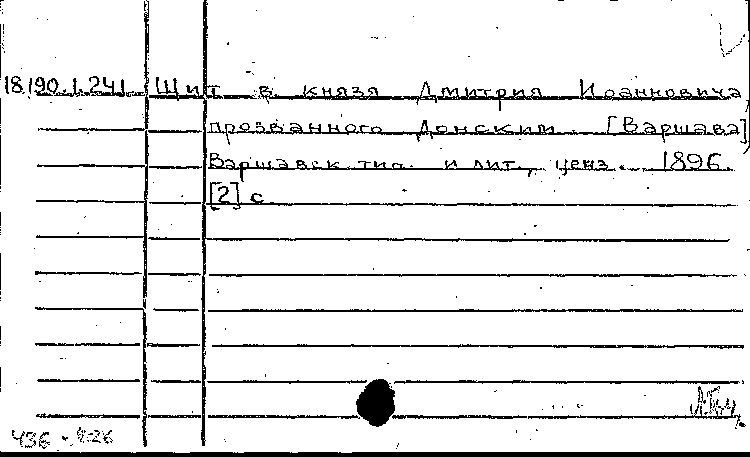 18.190.1.241 Щит в. князя Дмитрия Иоанновича,
прозванного Донским. [Варшава]
Варшавск. тип. и лит., ценз. 1896.
[2] с.
436